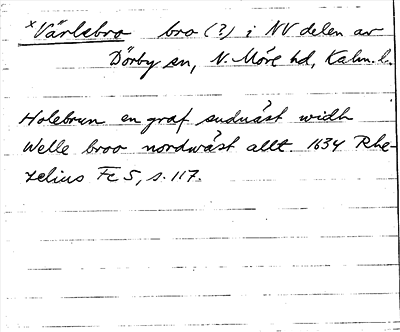 ×Värlebro bro (?) i NV delen av
Dörby sn, N. Möre hd, Kalm. l.
Holebrun en graf suduäst widh
Welle broo nordwäst allt. 1634 Rhe-
zelius Fc 5, s. 117.